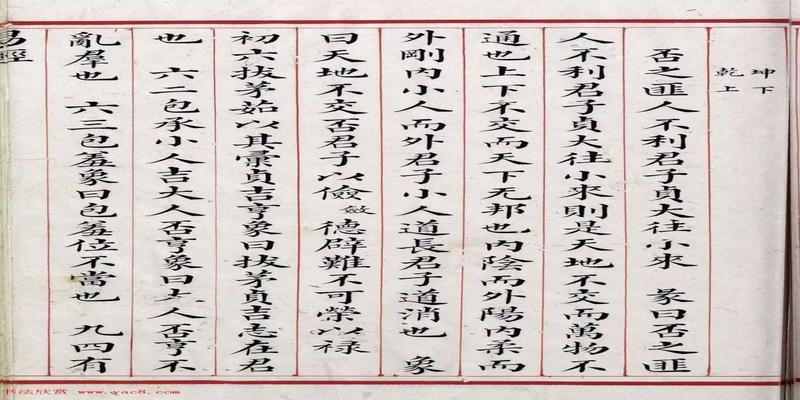 坤下
乾上
否之匪人不利君子貞大往小來　彖曰否之匪
人不利君子貞大往小來則是天地不交而萬物不
通也上下不交而天下无邦也內陰而外陽內柔而
外剛內小人而外君子小人道長君子道消也　象
曰天地不交否君子以儉德辟難不可榮以祿
初六拔茅茹以其彙貞吉亨象曰拔茅貞吉志在君
也　六二包承小人吉大人否亨象曰大人否亨不
亂羣也　六三包羞象曰包羞位不當也　九四有
易經
书法欣赏 www.yac8.com